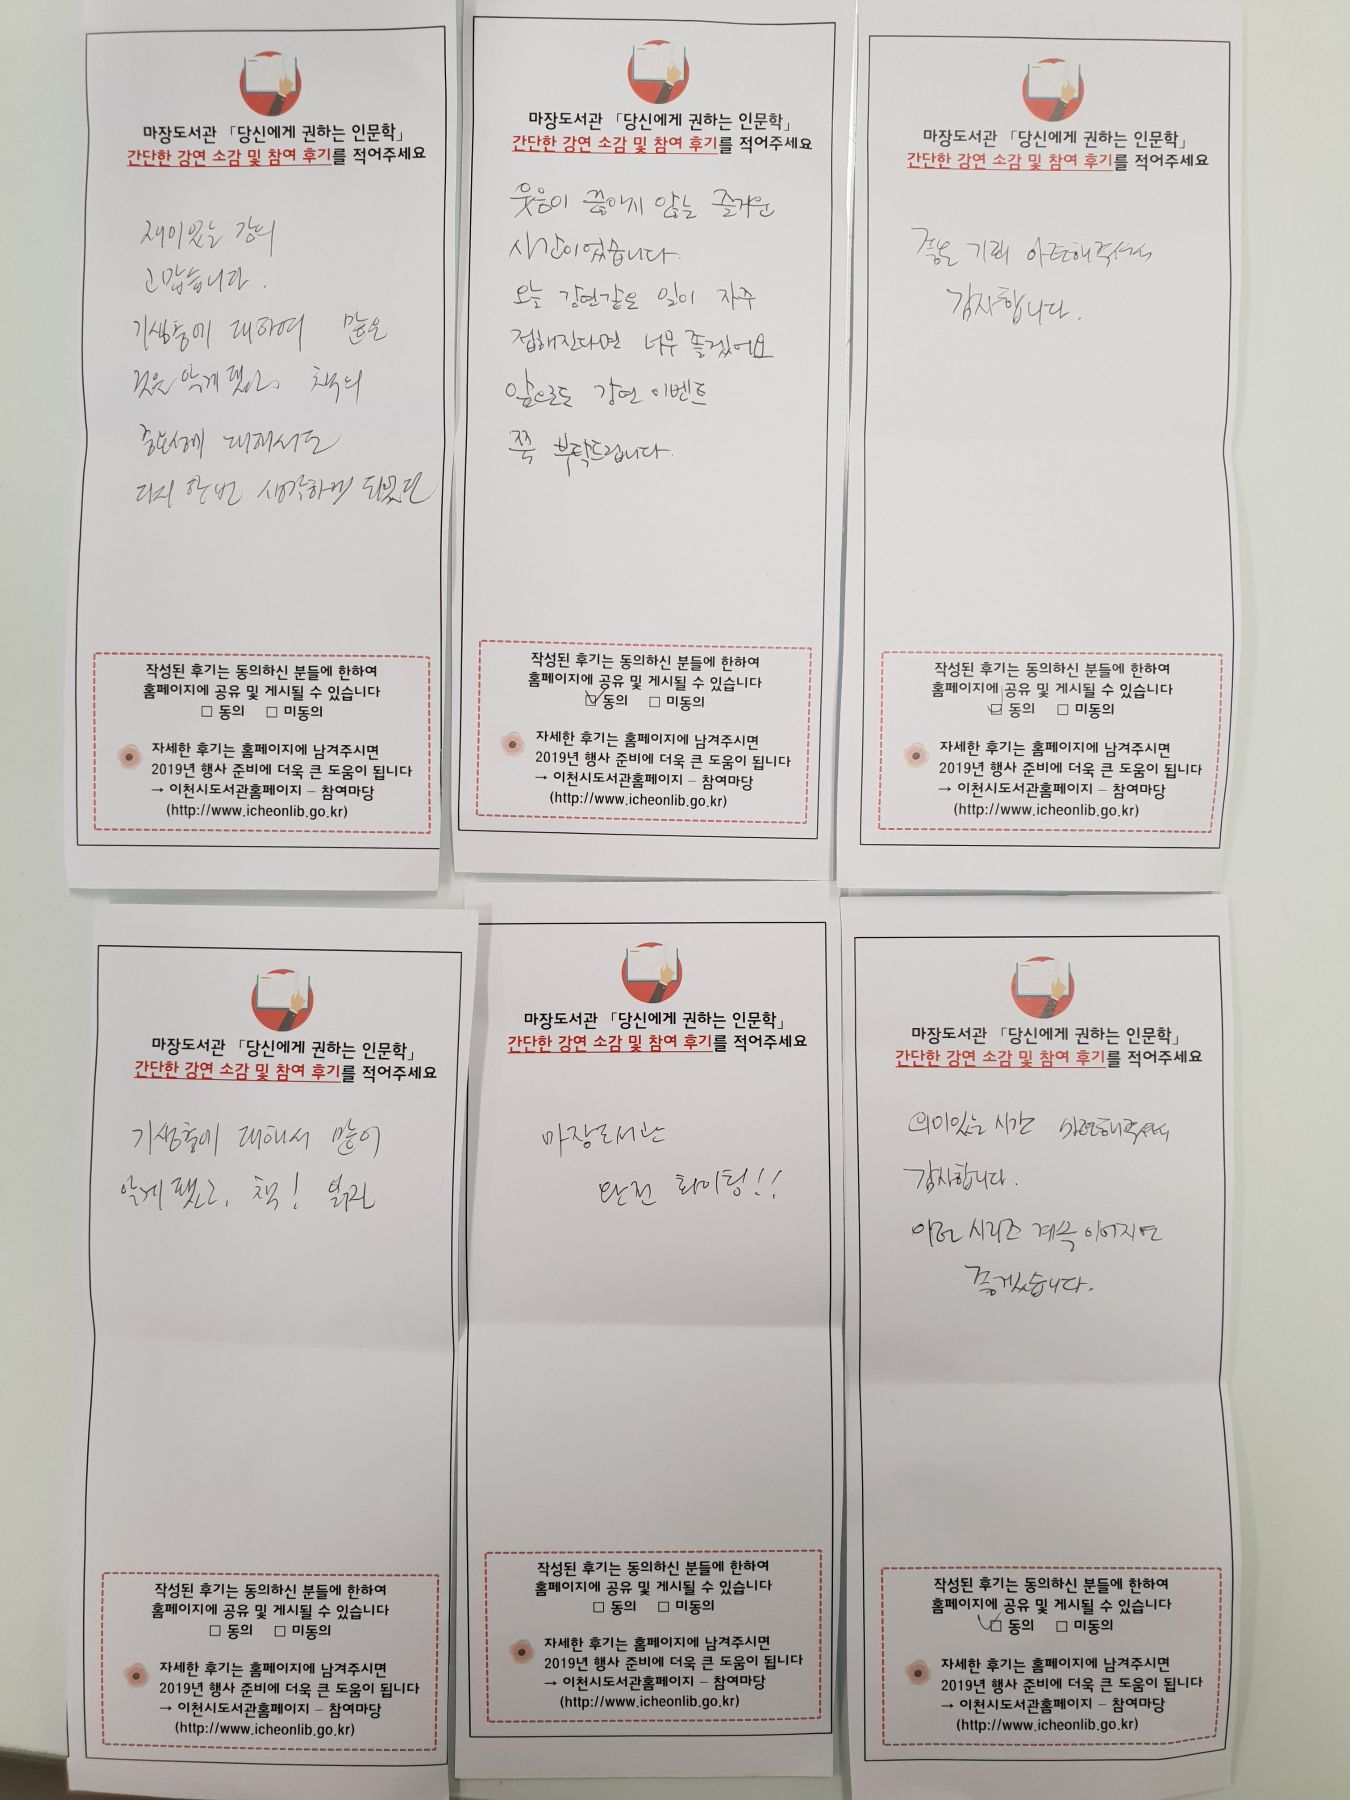 마장도서관 「당신에게 권하는 인문학」
간단한 강연 소감 및 참여 후기를 적어주세요
재미있는 강의
고맙습니다.
기생충에 대하여 많은
것을 알게 됐고, 책의
중요성에 대해서도
다시 한번 생각하게 되었던
작성된 후기는 동의하신 분들에 한하여
홈페이지에 공유 및 게시될 수 있습니다
□ 동의 □ 미동의
자세한 후기는 홈페이지에 남겨주시면
2019년 행사 준비에 더욱 큰 도움이 됩니다
→ 이천시도서관홈페이지 – 참여마당
(http://www.icheonlib.go.kr)
마장도서관 「당신에게 권하는 인문학」
간단한 강연 소감 및 참여 후기를 적어주세요
웃음이 끊이지 않는 즐거운
시간이었습니다.
오늘 강연같은 일이 자주
접해진다면 너무 좋겠어요
앞으로도 강연 이벤트
쭉 부탁드립니다.
작성된 후기는 동의하신 분들에 한하여
홈페이지에 공유 및 게시될 수 있습니다
☑ 동의 □ 미동의
자세한 후기는 홈페이지에 남겨주시면
2019년 행사 준비에 더욱 큰 도움이 됩니다
→ 이천시도서관홈페이지 – 참여마당
(http://www.icheonlib.go.kr)
마장도서관 「당신에게 권하는 인문학」
간단한 강연 소감 및 참여 후기를 적어주세요
좋은 기회
감사합니다.
작성된 후기는 동의하신 분들에 한하여
홈페이지에 공유 및 게시될 수 있습니다
☑ 동의 □ 미동의
자세한 후기는 홈페이지에 남겨주시면
2019년 행사 준비에 더욱 큰 도움이 됩니다
→ 이천시도서관홈페이지 – 참여마당
(http://www.icheonlib.go.kr)
마장도서관 「당신에게 권하는 인문학」
간단한 강연 소감 및 참여 후기를 적어주세요
기생충에 대해서 많이
알게 됐고, 책! 읽길
작성된 후기는 동의하신 분들에 한하여
홈페이지에 공유 및 게시될 수 있습니다
□ 동의 □ 미동의
자세한 후기는 홈페이지에 남겨주시면
2019년 행사 준비에 더욱 큰 도움이 됩니다
→ 이천시도서관홈페이지 – 참여마당
(http://www.icheonlib.go.kr)
마장도서관 「당신에게 권하는 인문학」
간단한 강연 소감 및 참여 후기를 적어주세요
마장도서관
완전 화이팅!!!
작성된 후기는 동의하신 분들에 한하여
홈페이지에 공유 및 게시될 수 있습니다
□ 동의 □ 미동의
자세한 후기는 홈페이지에 남겨주시면
2019년 행사 준비에 더욱 큰 도움이 됩니다
→ 이천시도서관홈페이지 – 참여마당
(http://www.icheonlib.go.kr)
마장도서관 「당신에게 권하는 인문학」
간단한 강연 소감 및 참여 후기를 적어주세요
의미있는 시간 마련해주셔서
감사합니다.
이런 시리즈 계속 이어지면
좋겠습니다.
작성된 후기는 동의하신 분들에 한하여
홈페이지에 공유 및 게시될 수 있습니다
☑ 동의 □ 미동의
자세한 후기는 홈페이지에 남겨주시면
2019년 행사 준비에 더욱 큰 도움이 됩니다
→ 이천시도서관홈페이지 – 참여마당
(http://www.icheonlib.go.kr)